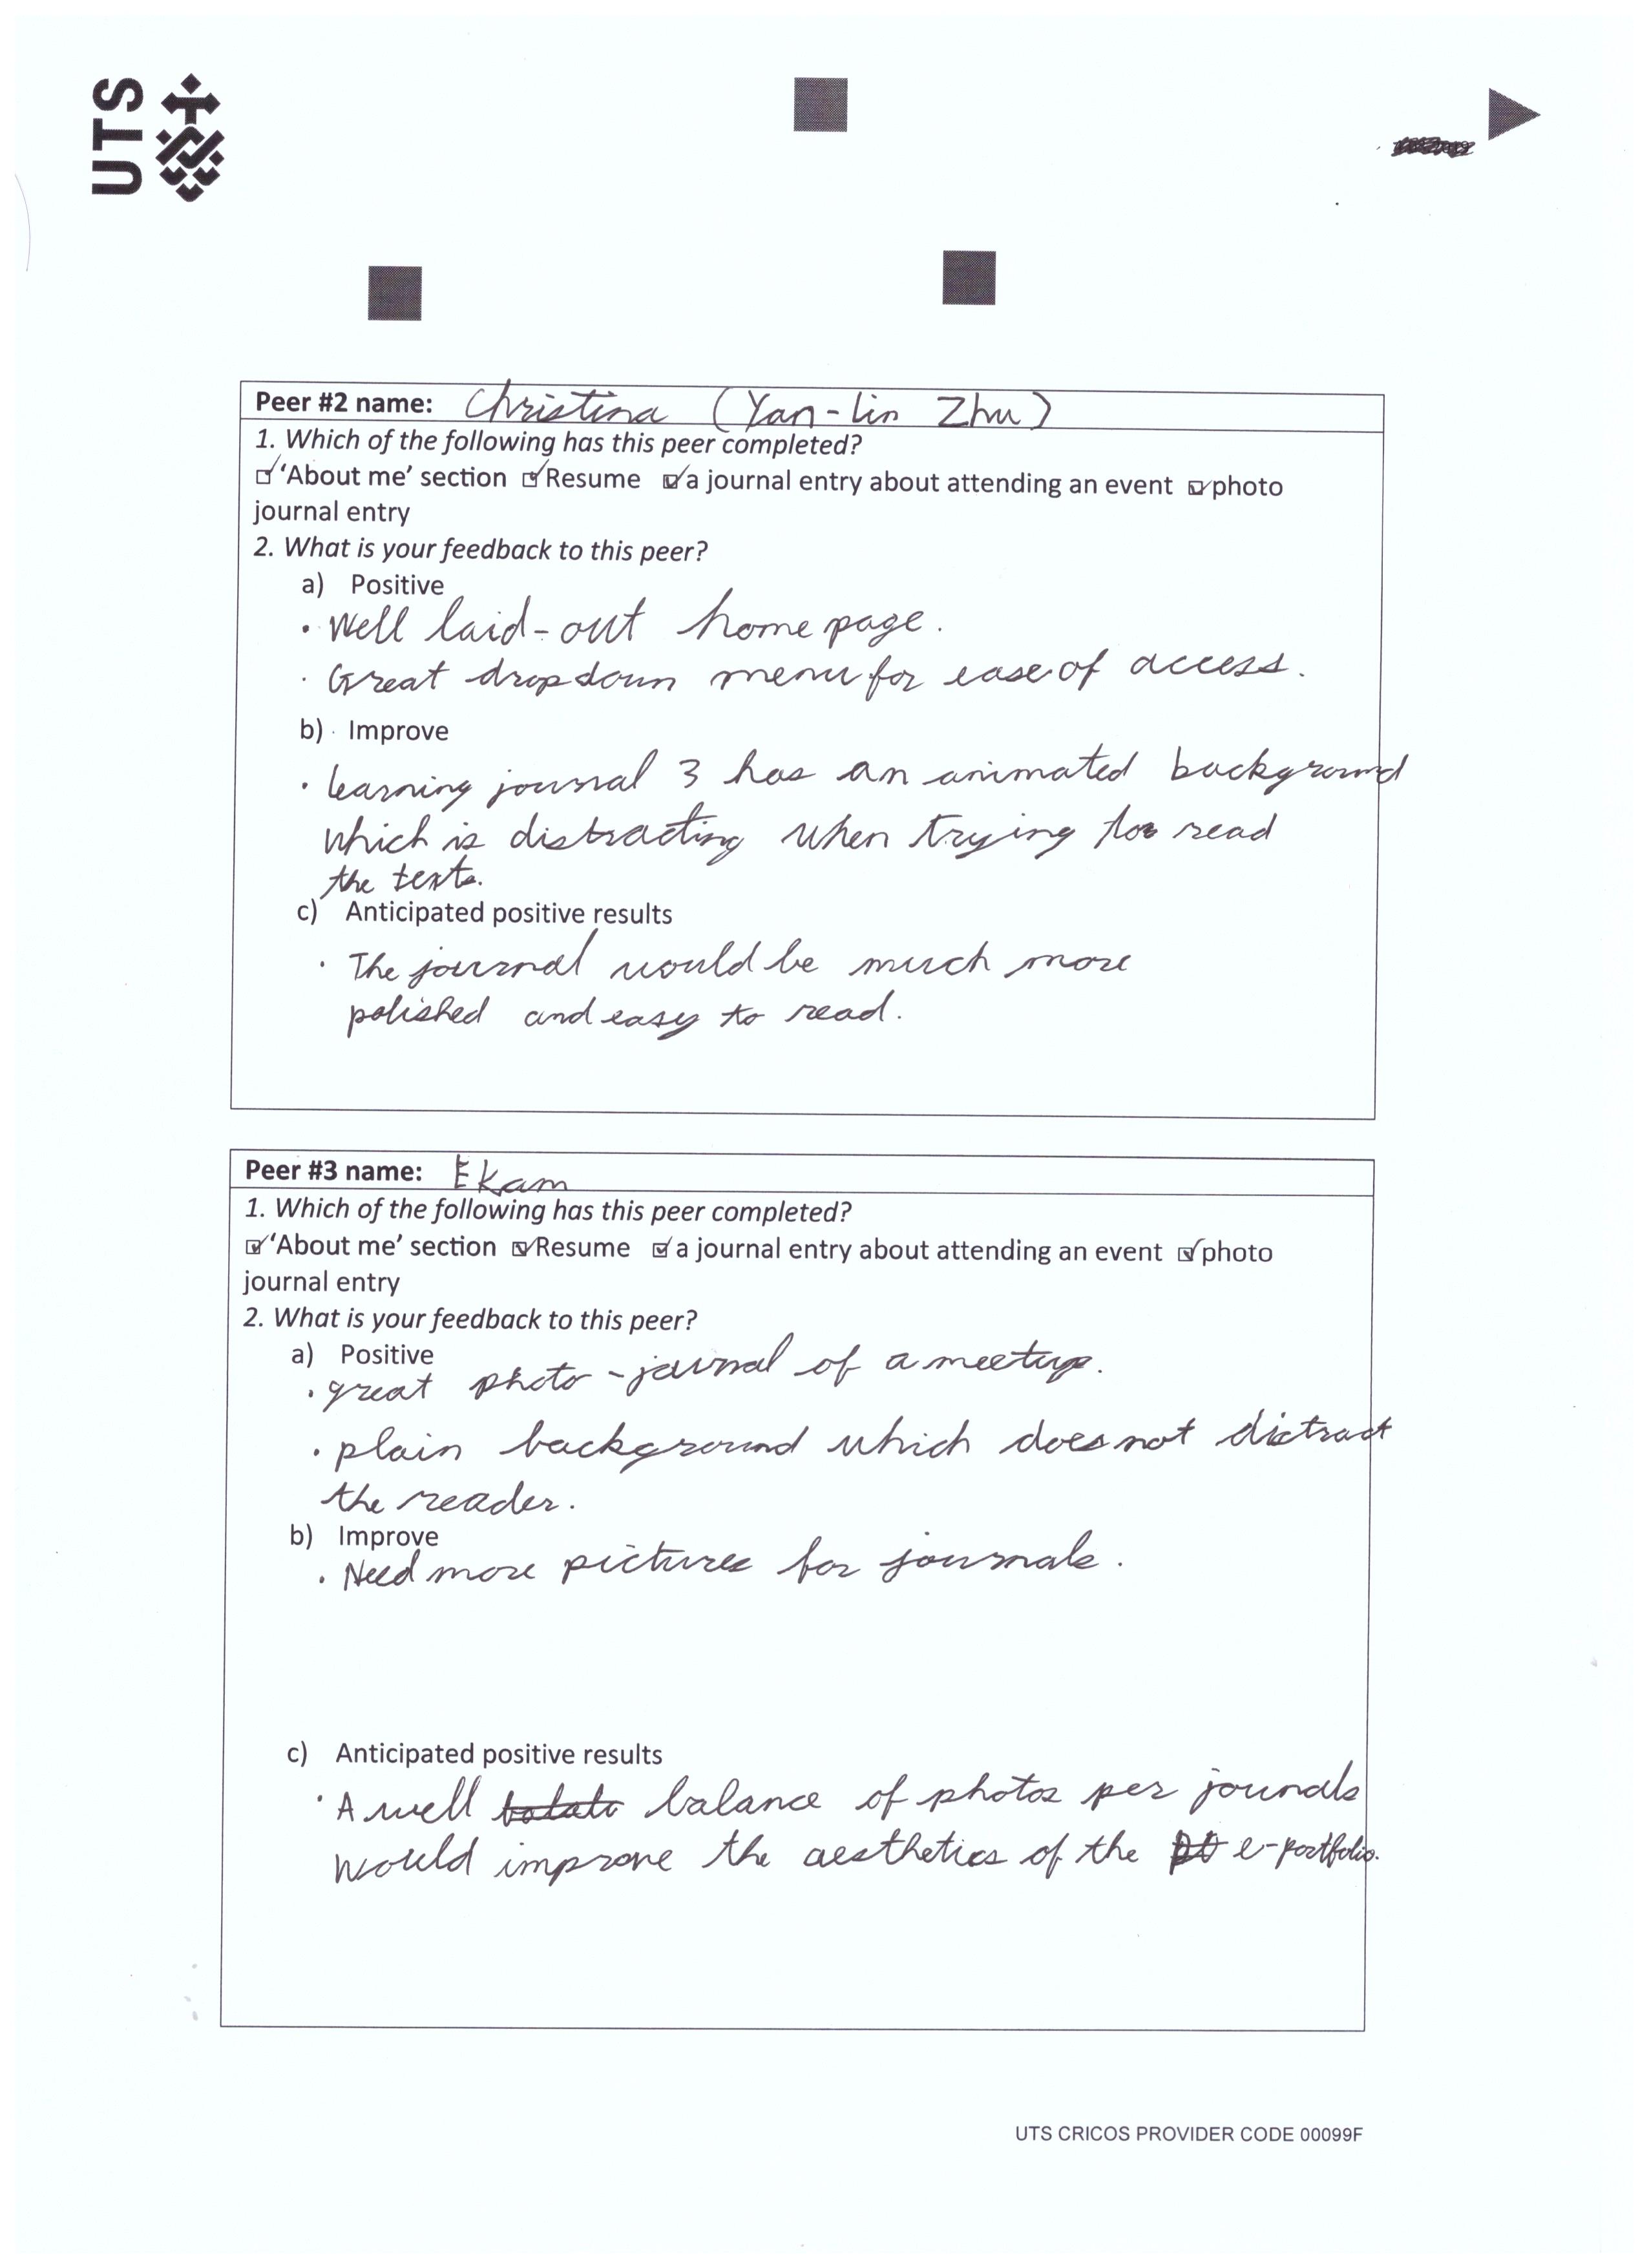 UTS
Peer #2 name: Christina (Yan-lin Zhu)
1. Which of the following has this peer completed?
☑ 'About me' section ☑ Resume ☑ a journal entry about attending an event ☑ photo
journal entry
2. What is your feedback to this peer?
a) Positive
• Well laid-out home page.
• Great dropdown menu for ease of access.
b) Improve
• learning journal 3 has an animated background
which is distracting when trying to read
the texts.
c) Anticipated positive results
• The journal would be much more
polished and easy to read.
Peer #3 name: Ekam
1. Which of the following has this peer completed?
☑ 'About me' section ☑ Resume ☑ a journal entry about attending an event ☑ photo
journal entry
2. What is your feedback to this peer?
a) Positive
• great photo-journal of a meetup.
• plain background which does not distract
the reader.
b) Improve
• Need more pictures for journals.
c) Anticipated positive results
• A well balance of photos per jounals
would improve the aesthetics of the e-portfolio.
UTS CRICOS PROVIDER CODE 00099F